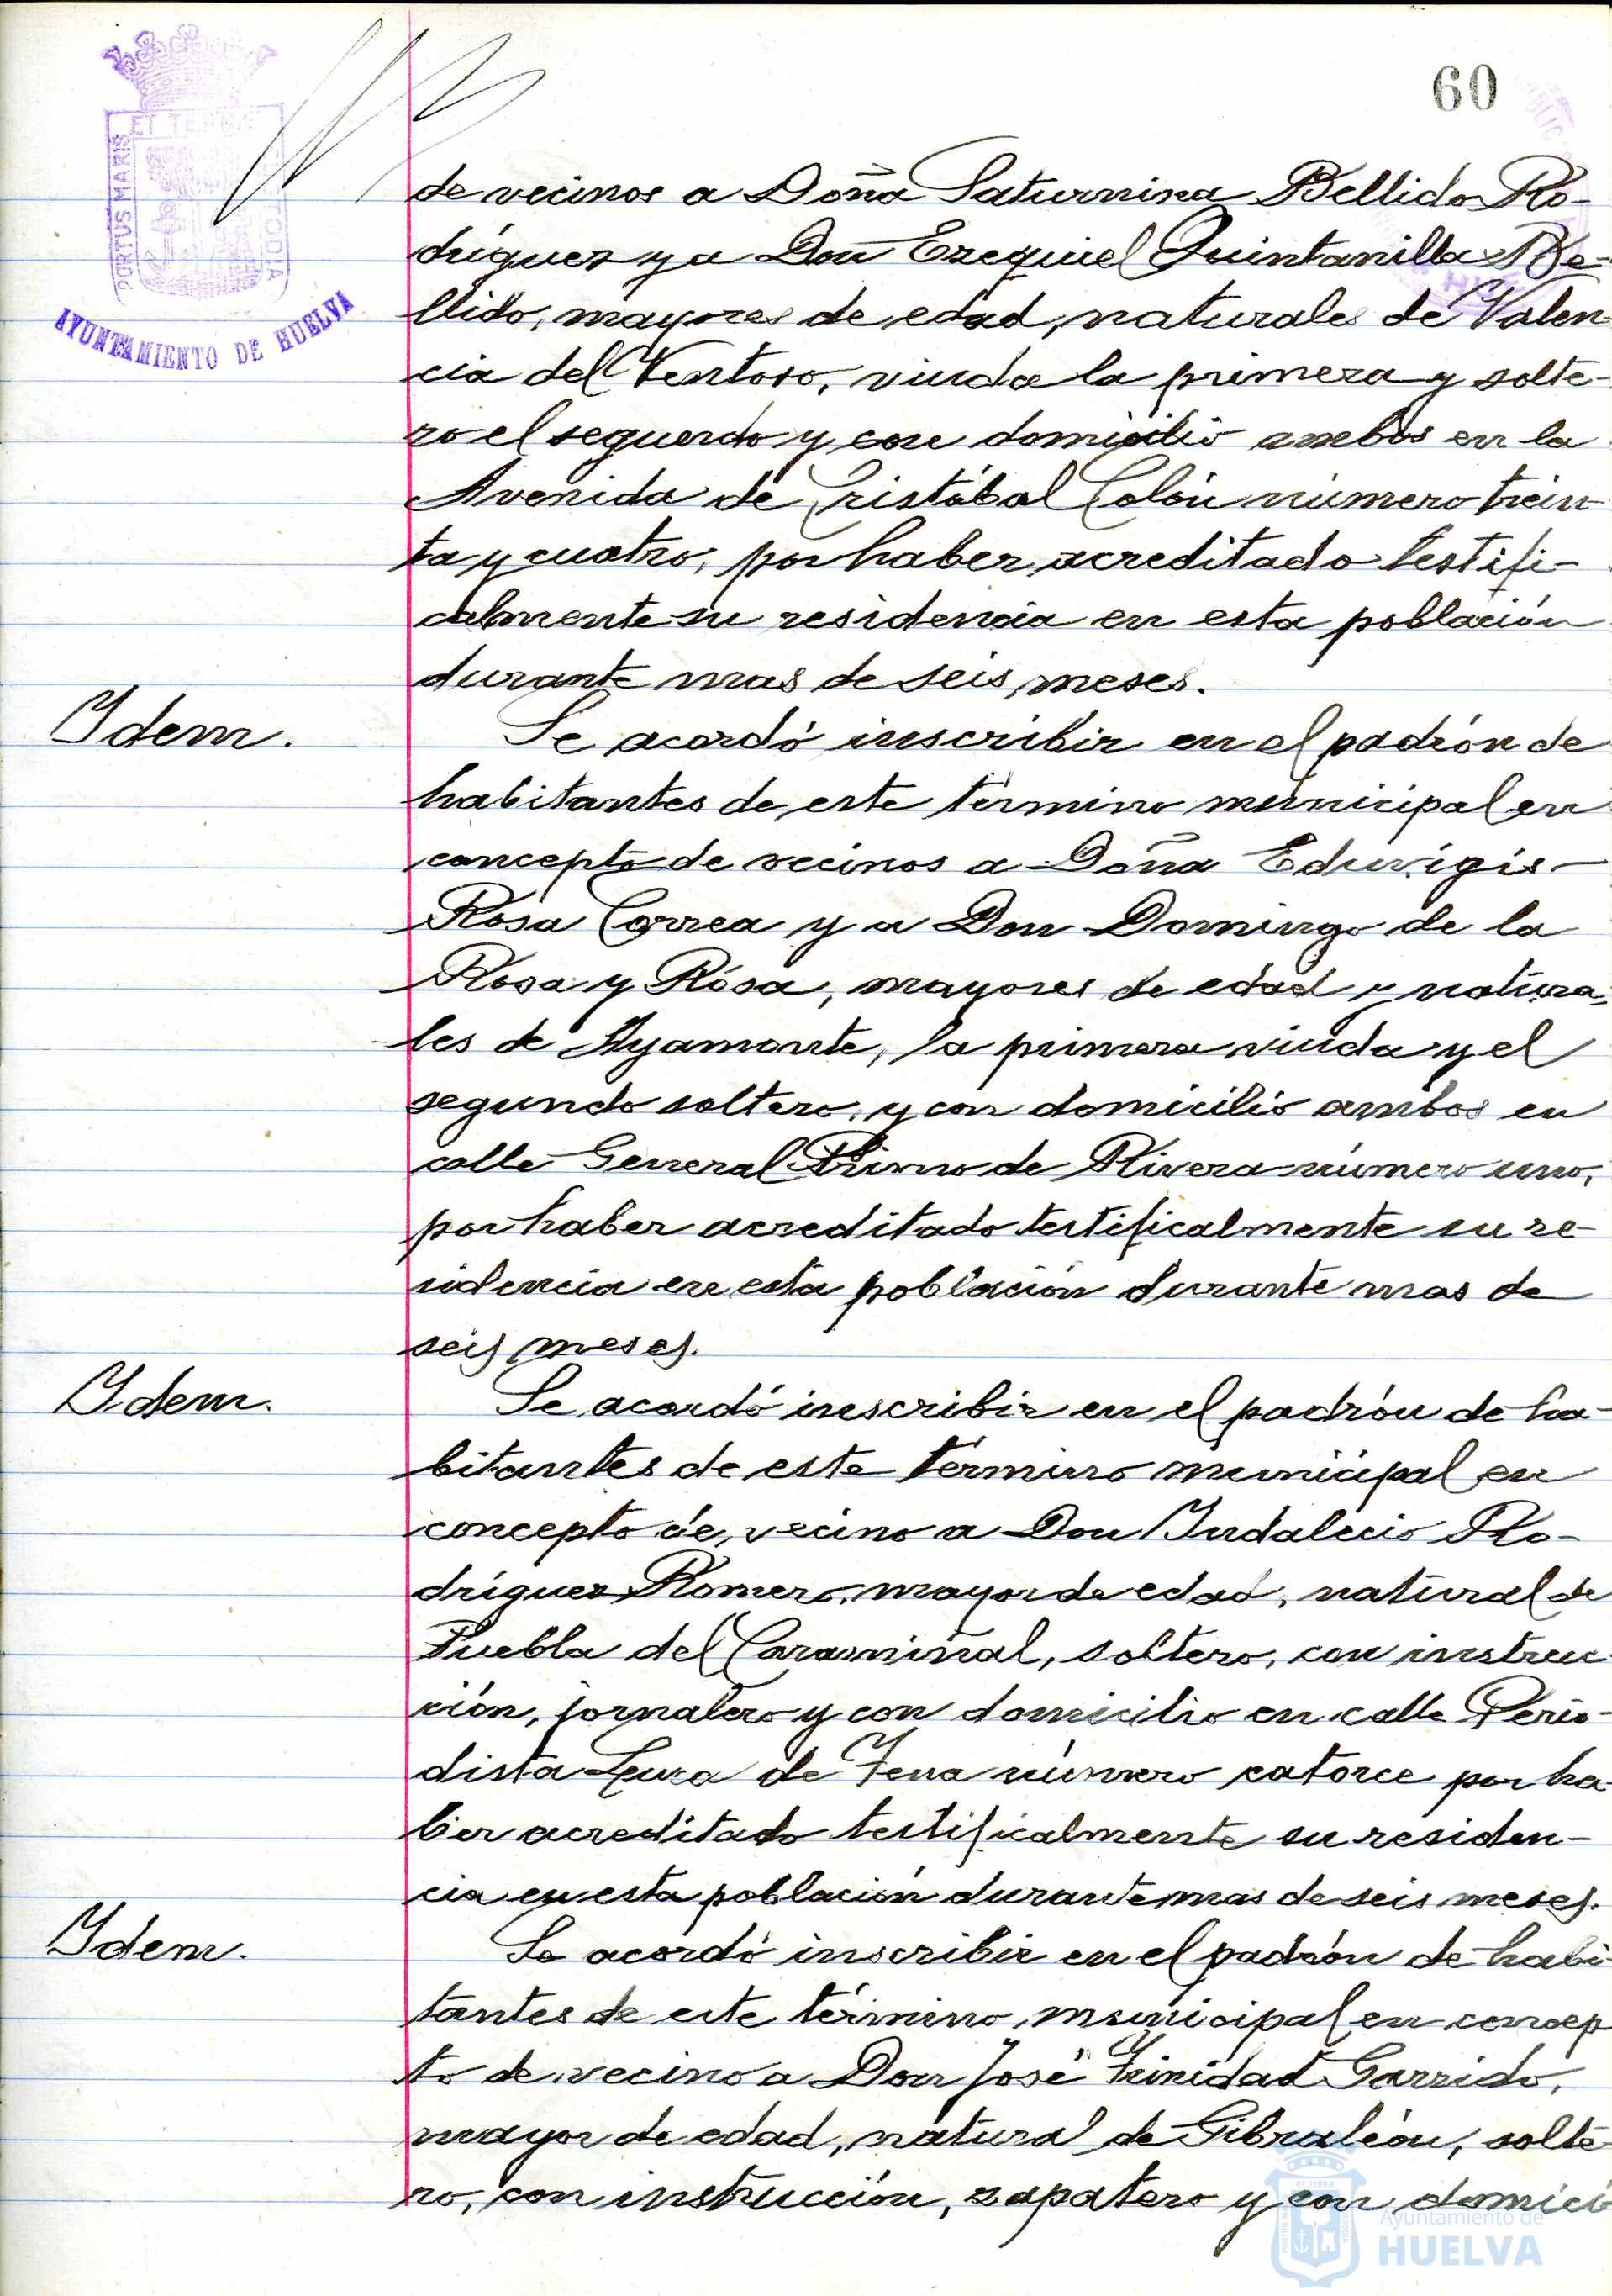 60
PORTUS MARIS
ET TERRÆ
CUSTODIA
AYUNTAMIENTO DE HUELVA
de vecinos a Doña Saturnina Bellido Ro-
dríguez y a Don Ezequiel Quintanilla Be-
llido, mayores de edad, naturales de Valen-
cia del Ventoso, viuda la primera y solte-
ro el segundo y con domicilio ambos en la
Avenida de Cristóbal Colón número trein-
ta y cuatro, por haber acreditado testifi-
calmente su residencia en esta población
durante mas de seis meses.
Idem.
Se acordó inscribir en el padrón de
habitantes de este término municipal en
concepto de vecinos a Doña Eduvigis
Rosa Correa y a Don Domingo de la
Rosa y Rosa, mayores de edad y natura-
les de Ayamonte, la primera viuda y el
segundo soltero, y con domicilio ambos en
calle General Primo de Rivera número uno,
por haber acreditado testificalmente su re-
sidencia en esta población durante mas de
seis meses.
Idem.
Se acordó inscribir en el padrón de ha-
bitantes de este término municipal en
concepto de vecino a Don Indalecio Ro-
dríguez Romero, mayor de edad, natural de
Puebla del Caramiñal, soltero, con instruc-
ción, jornalero y con domicilio en calle Perio-
dista Luca de Tena número catorce por ha-
ber acreditado testificalmente su residen-
cia en esta población durante mas de seis meses.
Idem.
Se acordó inscribir en el padrón de habi-
tantes de este término municipal en concep
to de vecino a Don José Trinidad Garrido,
mayor de edad, natural de Gibraleón, solte-
ro, con instrucción, zapatero y con domici
Ayuntamiento de
HUELVA